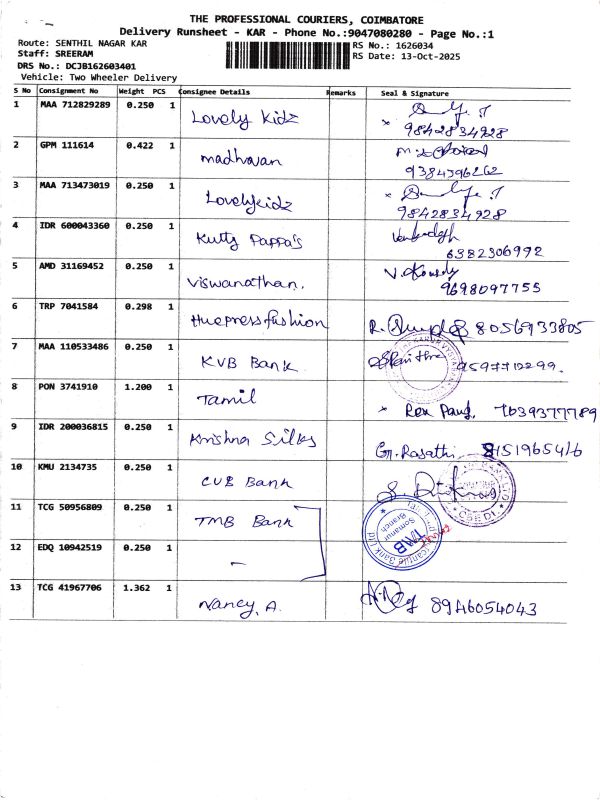 THE PROFESSIONAL COURIERS, COIMBATORE
Delivery Runsheet - KAR - Phone No.:9047080280 - Page No.:1
Route: SENTHIL NAGAR KAR
Staff: SREERAM
DRS No.: DCJB162603401
Vehicle: Two Wheeler Delivery
RS No.: 1626034
RS Date: 13-Oct-2025
S No Consignment No Weight PCS Consignee Details Remarks Seal & Signature
1 MAA 712829289 0.250 1 Lovely Kidz
9842834928
2 GPM 111614 0.422 1 madhavan
9384396262
3 MAA 713473019 0.250 1 Lovelykidz
9842834928
4 IDR 600043360 0.250 1 Kutty Pappa's
6382306992
5 AMD 31169452 0.250 1 Viswanathan.
9698097755
6 TRP 7041584 0.298 1 Huepressfashion 8056933805
7 MAA 110533486 0.250 1 KVB Bank 9597712299.
8 PON 3741910 1.200 1 Tamil
7639377789
9 IDR 200036815 0.250 1 Krishna Silks
Gn. Rasathi
10 KMU 2134735 0.250 1 CUB Bank
11 TCG 50956809 0.250 1 TMB Bank
TMB
Somanur
Branch
12 EDQ 10942519 0.250 1 -
13 TCG 41967706 1.362 1 Nancy, A. 8946054043